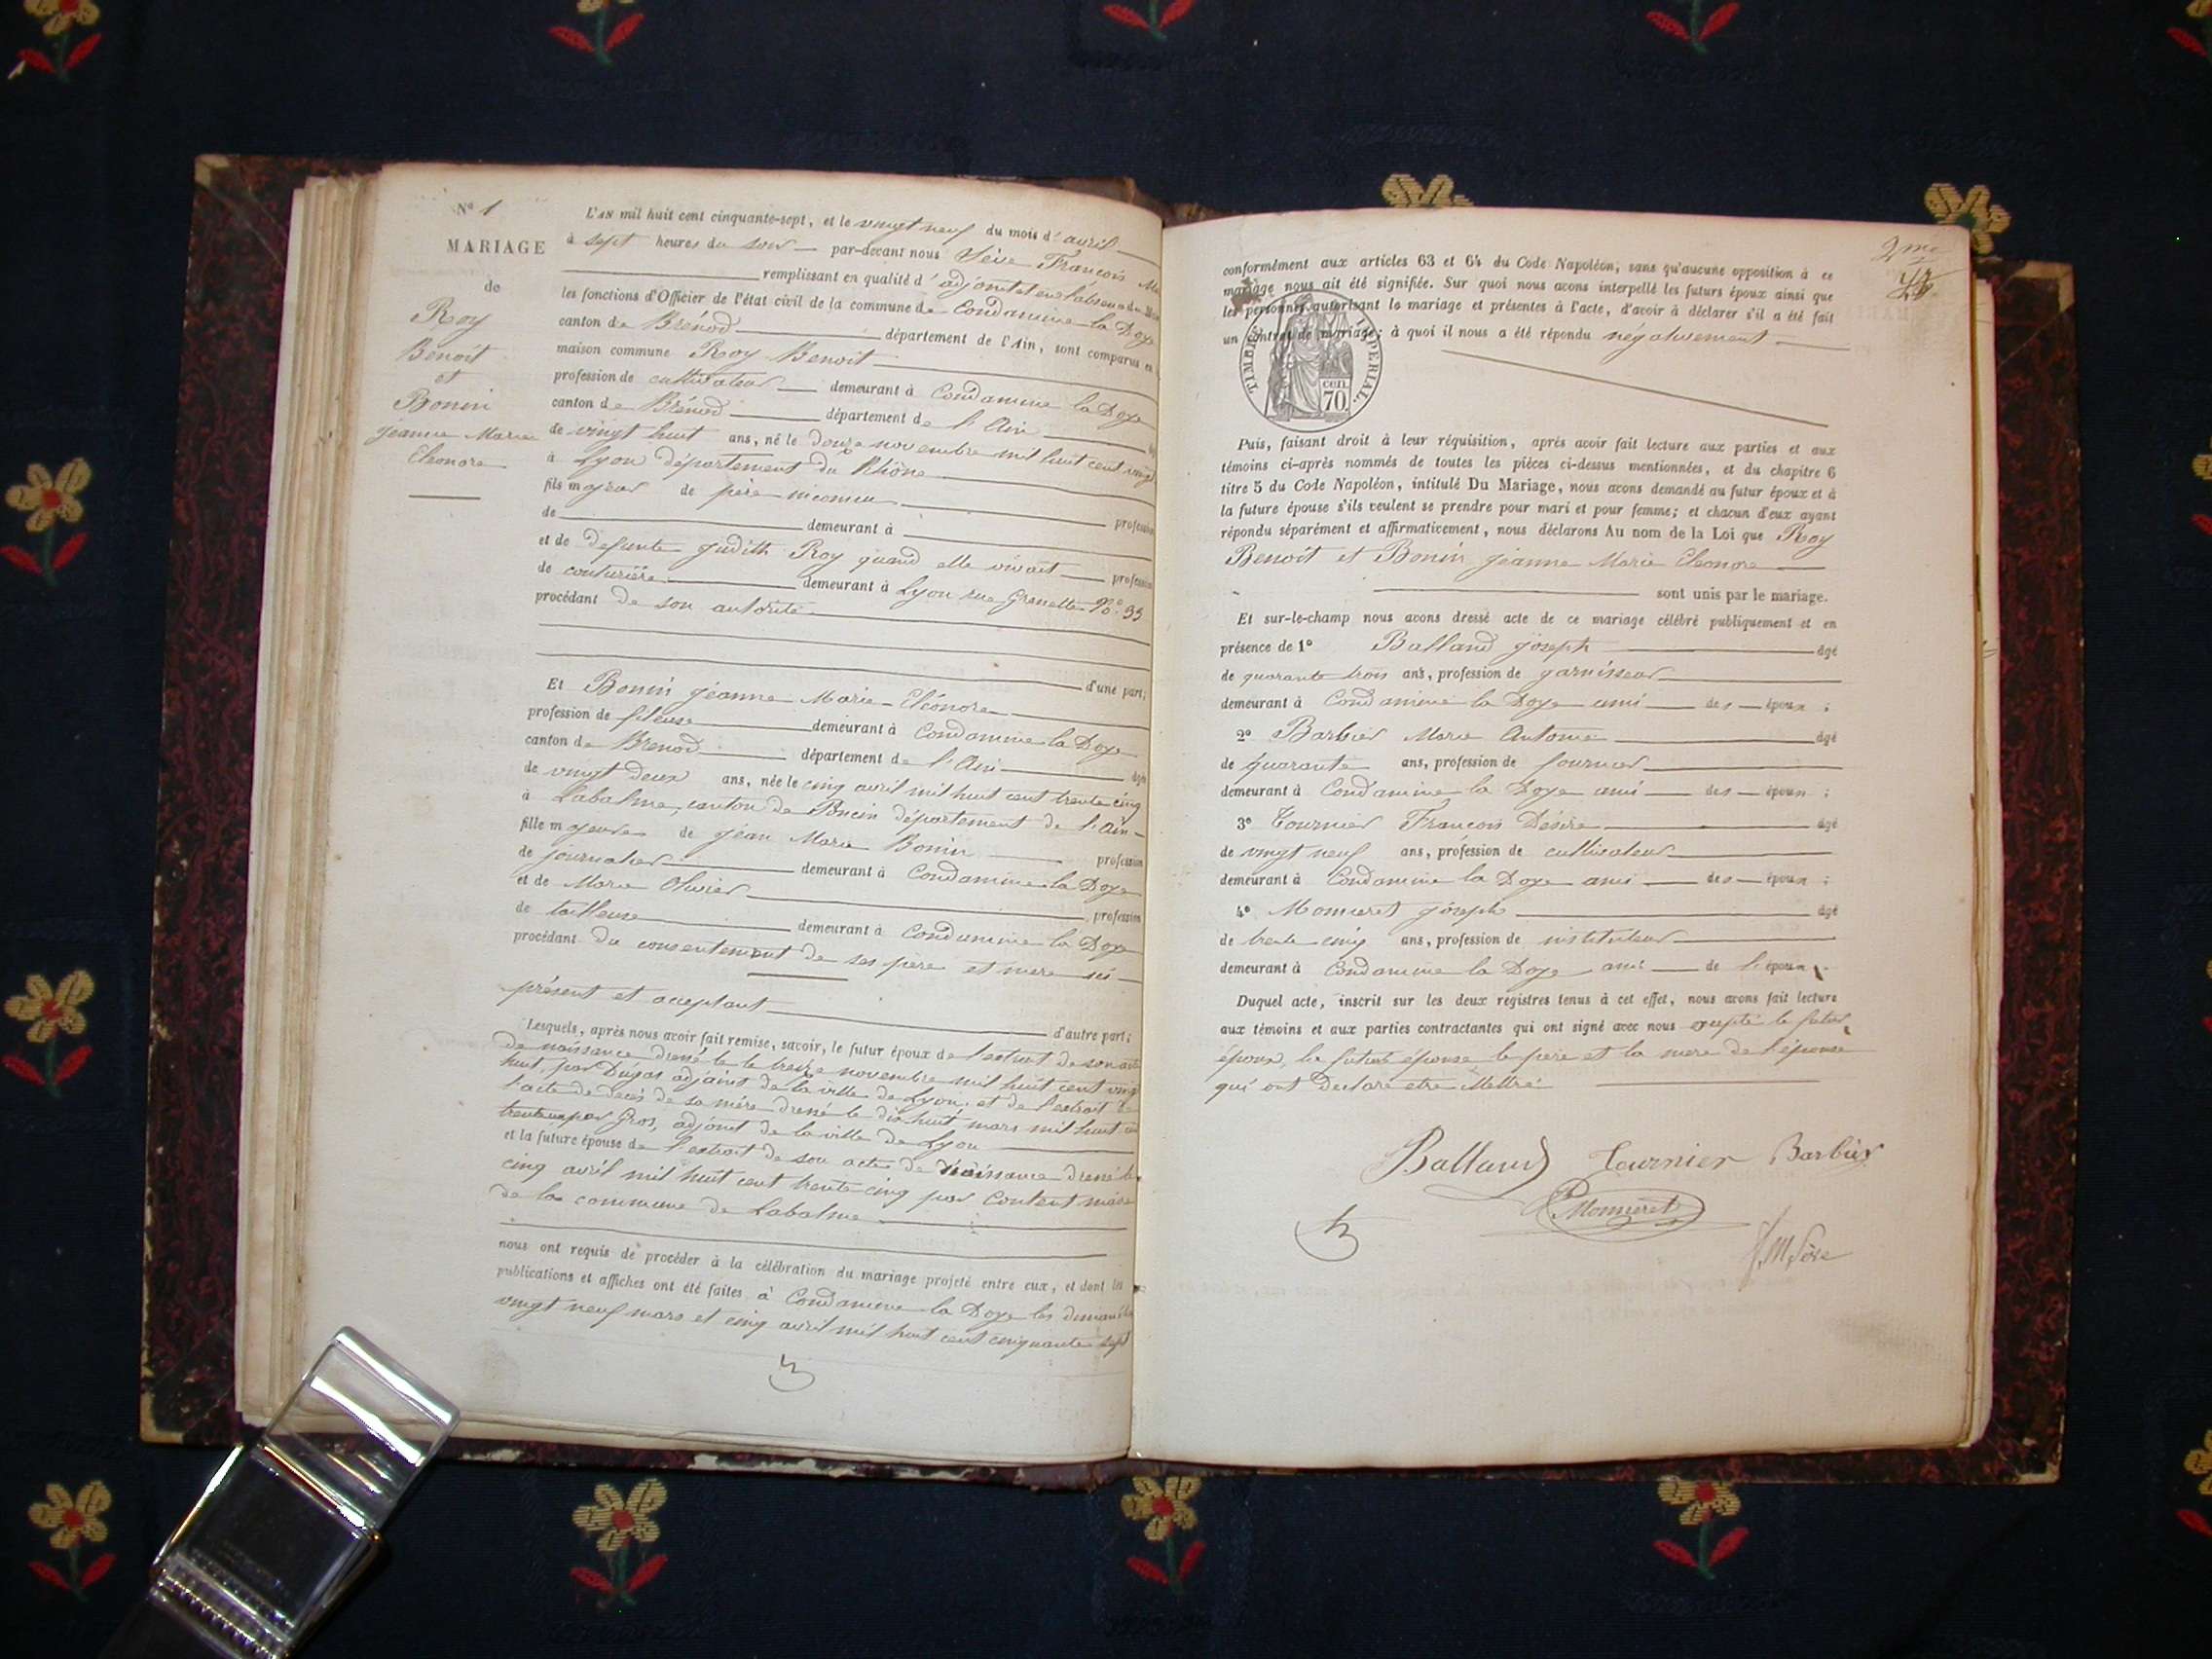 Nº 1
MARIAGE
de
Roy
Benoit
et
Bonin
jeanne Marie
Eleonore
L'AN mil huit cent cinquante-sept, et le vingt neuf du mois d'avril
à sept heures du soir par-devant nous Sève François
remplissant en qualité d'adjoint et en l'absence du
les fonctions d'Officier de l'état civil de la commune de Condamine la Doye
canton de Brénod département de l'Ain, sont comparus en
maison commune Roy Benoit
profession de cultivateur demeurant à Condamine la Doye
canton de Brénod département de l'Ain
de vingt huit ans, né le douze novembre mil huit cent vingt
à Lyon département du Rhône
fils majeur de père inconnu
de demeurant à profession
et de defunte judith Roy quand elle vivait profession
de couturière demeurant à Lyon rue Grenette Nº 33
procédant de son autorité
d'une part;
Et Bonin jeanne Marie Eléonore
profession de fileuse demeurant à Condamine la Doye
canton de Brenod département de l'Ain âgée
de vingt deux ans, née le cinq avril mil huit cent trente cinq
à Labalme, canton de Poncin département de l'Ain
fille majeure de jean Marie Bonin profession
de journalier demeurant à Condamine la Doye
et de Marie Olivier profession
de tailleuse demeurant à Condamine la Doye
procédant du consentement de ses père et mere ici
présent et acceptant
d'autre part;
Lesquels, après nous avoir fait remise, savoir, le futur époux de l'extrait de son acte
de naissance dressé le treize novembre mil huit cent vingt
huit, par Dugas adjoint de la ville de Lyon, et de l'extrait de
l'acte de decès de sa mère dressé le dix huit mars mil huit cent
trente un par Gros, adjoint de la ville de Lyon
et la future épouse de l'extrait de son acte de naissance dressé le
cinq avril mil huit cent trente cinq par Content maire
de la commune de Labalme
nous ont requis de procéder à la célébration du mariage projeté entre eux, et dont les
publications et affiches ont été faites à Condamine la Doye les dimanches
vingt neuf mars et cinq avril mil huit cent cinquante sept
2me
conformément aux articles 63 et 64 du Code Napoléon, sans qu'aucune opposition à ce
mariage nous ait été signifiée. Sur quoi nous avons interpellé les futurs époux ainsi que
les personnes autorisant le mariage et présentes à l'acte, d'avoir à déclarer s'il a été fait
un contrat de mariage; à quoi il nous a été répondu négativement
TIMBRE IMPERIAL.
cen.
70
Puis, faisant droit à leur réquisition, après avoir fait lecture aux parties et aux
témoins ci-après nommés de toutes les pièces ci-dessus mentionnées, et du chapitre 6
titre 5 du Code Napoléon, intitulé Du Mariage, nous avons demandé au futur époux et à
la future épouse s'ils veulent se prendre pour mari et pour femme; et chacun d'eux ayant
répondu séparément et affirmativement, nous déclarons Au nom de la Loi que Roy
Benoit et Bonin jeanne Marie Eleonore
sont unis par le mariage.
Et sur-le-champ nous avons dressé acte de ce mariage célébré publiquement et en
présence de 1º Balland joseph âgé
de quarante trois ans, profession de garnisseur
demeurant à Condamine la Doye ami des époux;
2º Barbier Marie Antoine âgé
de quarante ans, profession de fournier
demeurant à Condamine la Doye ami des époux;
3º Tournier François Désiré âgé
de vingt neuf ans, profession de cultivateur
demeurant à Condamine la Doye ami des époux;
4º Monneret joseph âgé
de trente cinq ans, profession de instituteur
demeurant à Condamine la Doye ami de l'époux.
Duquel acte, inscrit sur les deux registres tenus à cet effet, nous avons fait lecture
aux témoins et aux parties contractantes qui ont signé avec nous excepté le futur
époux, la future épouse le père et la mere de l'épouse
qui ont declaré etre illettré
Balland Tournier Barbier
Monneret
f. M Sève